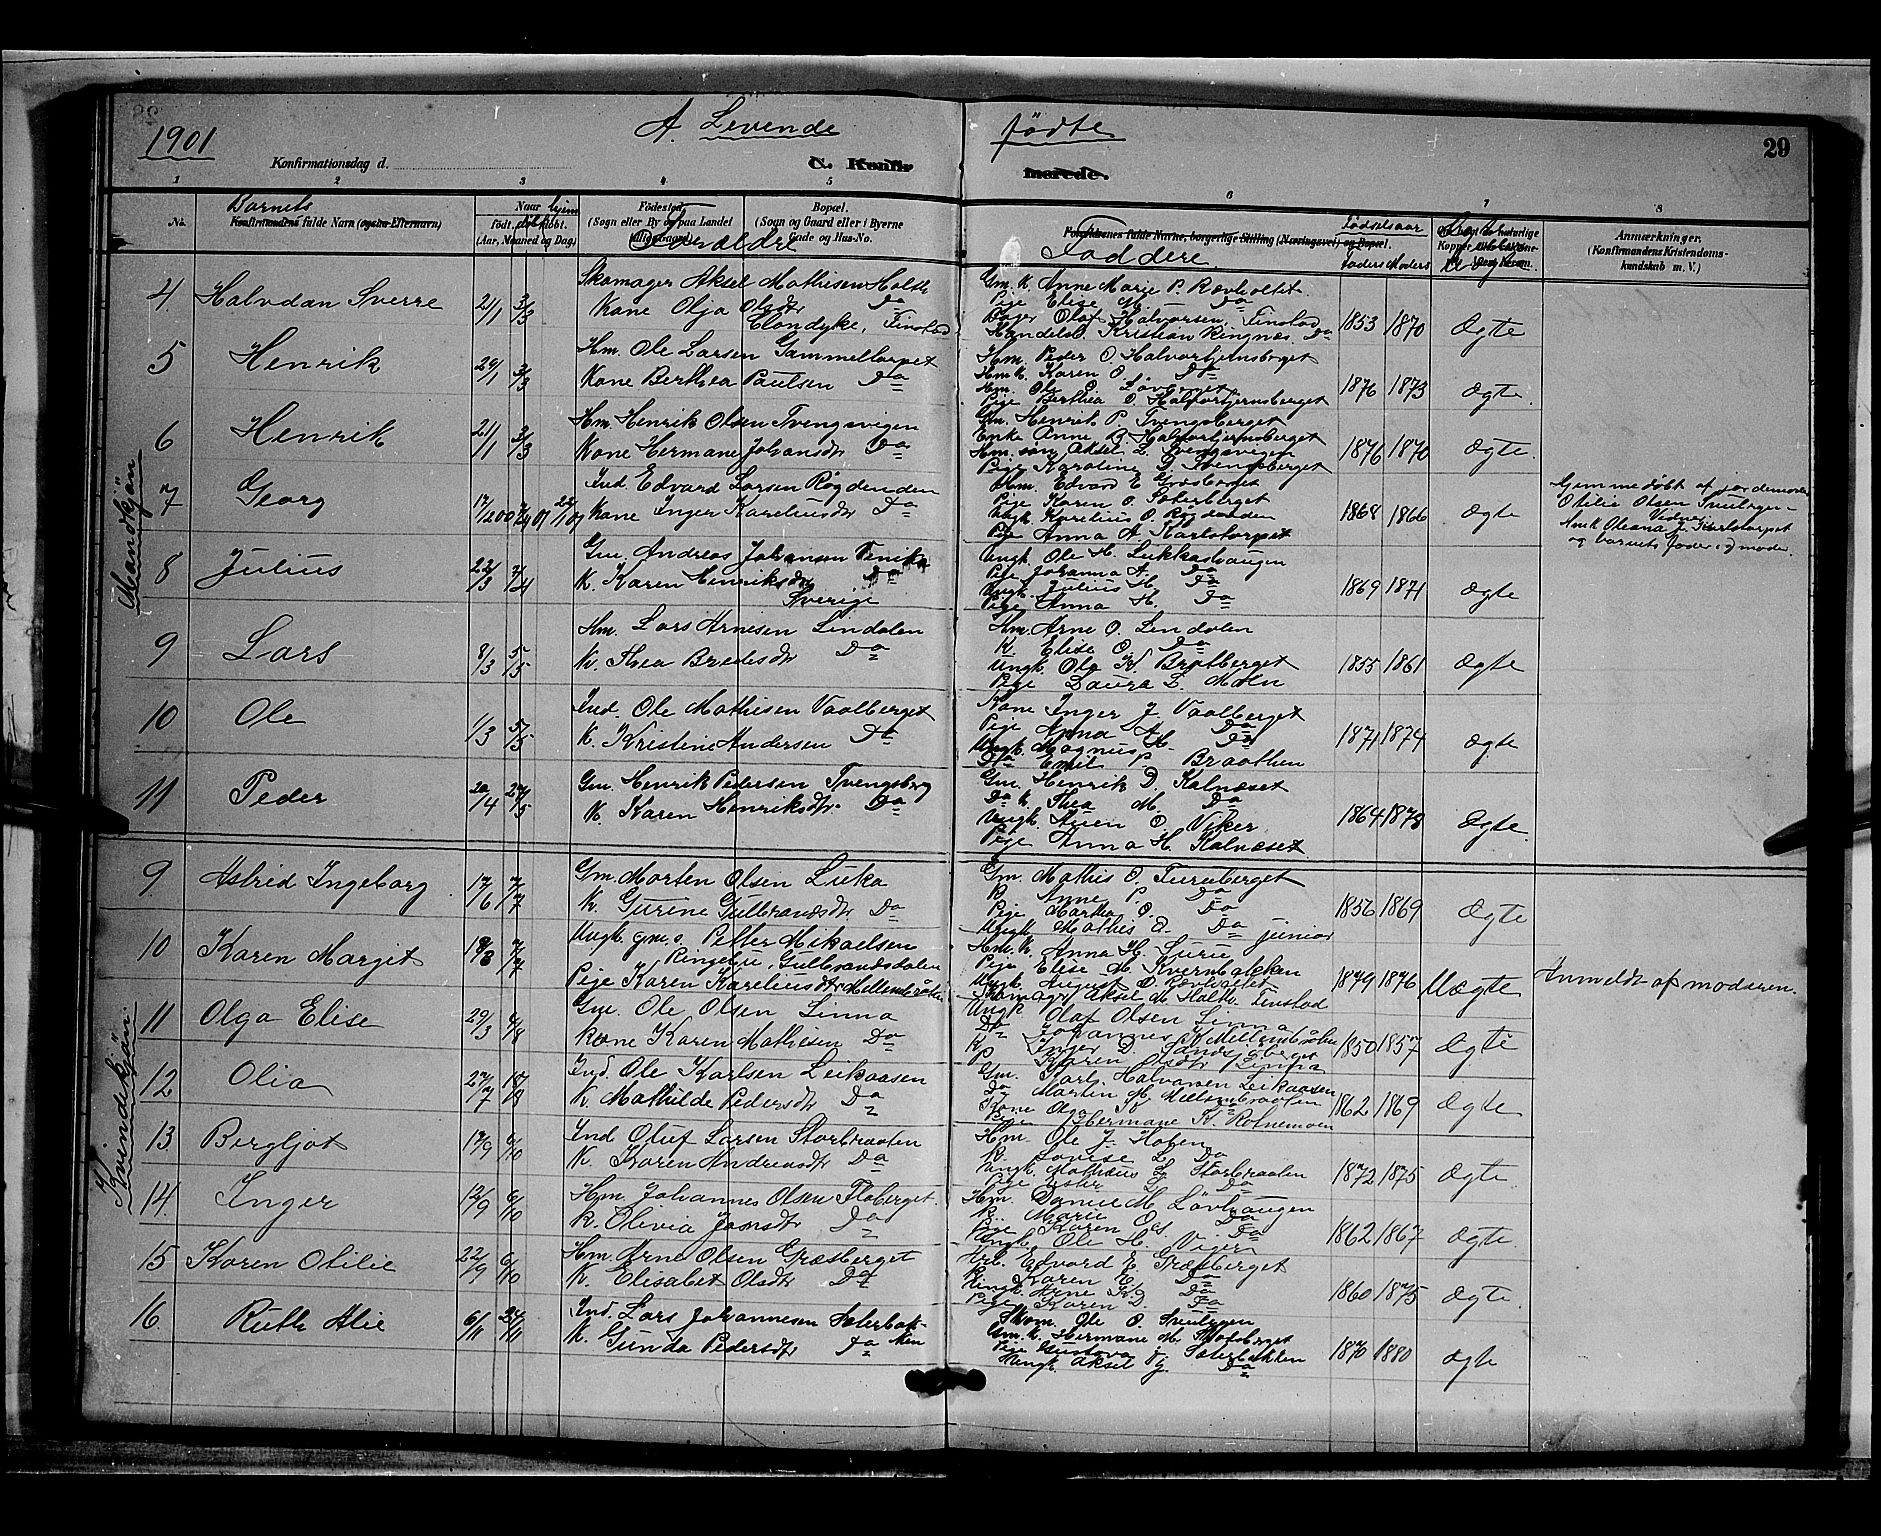 1901
A. Levende fødte
29
Konfirmationsdag d.
C. Konfirmerede.
1 2 3 4 5 6 7 8
No.
Barnets
Konfirmandens fulde Navn (ogsaa Efternavn)
Naar hjem
født. døbt.
(Aar, Maaned og Dag)
Fødested
(Sogn eller By og paa Landet
Bopæl.
(Sogn og Gaard eller i Byerne
Gade og Hus-No.
Forældre
Forældrenes fulde Navne, borgerlige Stilling (Næringsvei) og Bopæl.
Faddere
Fødselsaar
Faders Moders
Anmærkninger.
(Konfirmandens Kristendoms-
kundskab m. V.)
Mandkjøn
4. Halvdan Sverre 21/1 3/3 Skomager Aksel Mathisen Holth
Kone Olja Olsdtr Do
Clondyke, Finstad
Gm. K. Anne Marie P. Rævholtet
Pige Elise M. Do
Bager Olaf Halvorsen, Finstad
Handelsb. Kristian Ringnæs Do
1853 1870 Ægte
5 Henrik 3/3 Hm. Ole Larsen Gammeltorpet
Kone Berthea Paulsen Do
Hm. Peder O. Halvortjernsberget
Hmk. Karen O. Do
Hm. Ole P. Løvberget
Pige Berthea O Halvortjernsberget
1876 1873 Ægte.
6 Henrik 21/1 3/3 Hm. Henrik Olsen Tvengsvigen
Kone Hermane Johansdtr Do
Gm. Henrik P. Tvengsberget
Enke Anne B. Halvortjernsberget
Hm. søn Aksel L. Tvengsvigen
Pige Karoline D. Tvengsberget
1876 1870 Ægte.
7 Georg Ind. Edvard Larsen Røgdenden
Kone Inger Kareliusdtr Do
Hm. Edvard E Græsberget
Pige Karen O. Sæterberget
Ungk. Karelius O. Røgdenden
Pige Anna A. Karlstorpet
1868 1866 Ægte
Hjemmedøbt af jordemoder
Otilie Olsen Snulegen
Vidner
Hmk Oleana J. Karlstorpet
og barnets fader og moder.
8 Julius 22/3 7/4 Gm. Andreas Johansen
K. Karen Henriksdtr Do
Sverige
Ungk. Ole H. Lukkashaugen
Pige Johanna A. Do
Ungk. Julius H. Do
Pige Anna H. Do
1869 1871 Ægte
9 Lars 8/3 5/5 Hm. Lars Arnesen Lindalen
K. Thea Bredesdtr Do
Hm. Arne O. Lindalen
K. Elise O. Do
Ungk. Ole K Bratberget
Pige Laura L. Moln
1855 1861 Ægte
10 Ole 1/3 5/5 Ind. Ole Mathisen Vaalberget
K. Kristine Andersen Do
Kone Inger J. Vaalberget
Pige Anna A. Do
Ungk. Magnus H. Do
Do Emil P. Braathen
1871 1874 Ægte
11 Peder 20/4 27/5 Gm. Henrik Pedersen Tvengsberg
K. Karen Henriksdtr. Do
Gm. Henrik D. Kalnæset
Do K. Thea M. Do
Ungk. Auen O. Viker
Pige Anna H. Kalnæset
1864 1878 Ægte.
Kvindekjøn.
9 Astrid Ingeborg 17/6 7/7 Gm. Morten Olsen Lieka
K. Gurine Gulbrandsdtr Do
Gm. Mathis O. Furuberget
K. Anne P. Do
Pige Martha O. Do
Ungk Mathis O. Do junior
1856 1869 Ægte
10 Karen Margit 7/7 Ungk. gm.s. Petter Mikaelsen
Ringebu, Gulbrandsdalen
Pige Karen Kareliusdtr Mellembråten
Hm. K. Anna H. Lurie
Pige Elise M. Kvernbakken
Ungk. August D. Rævholtet
Skomager Aksel M. Holth Finstad
1879 1876 Uægte
Anmeldt af moderen.
11 Olga Elise 29/3 4/8 Gm. Ole Olsen Linna
Kone Karen Mathisen Do
Ungk Olaf Olsen Linna
Do Johannes K Mellembråten
K. Inger D. Sandsjøberget
P. Karen Osdtr Linna
1850 1857 Ægte
12 Olia 27/7 18/8 Ind. Ole Karlsen Leikaasen
K. Mathilde Pedersdtr Do
Gm. Karl Halvorsen Leikaasen
Do Martin M Mellembraaten
Kone Olga K. Do
Hermane K. Rotnemoen
1862 1869 Ægte
13 Bergljot 17/9 6/10 Ind Oluf Larsen Storbraaten
K. Karen Andreasdtr Do
Hm. Ole J. Hoben
K. Lovise L. Do
Ungk. Mathæus L. Storbraaten
Pige Ester L. Do
1872 1875 Ægte.
14. Inger 12/9 6/10 Hm. Johannes Olsen Floberget.
K. Olivia Jonsdtr Do
Hm. Daniel M. Løvhaugen
K. Marie Do
Pige Karen Os. Do
Ungk. Ole H. Vigen
1862 1867 Ægte.
15 Karen Otilie 22/9 6/10 Hm. Arne Olsen Græsberget
K. Elisabet Olsdtr Do
Edvard E Græsberget
K. Karen E. Do
Ungk. Arne K. Do
Pige Karen D. Do
1860 1875 Ægte.
16. Ruth Alie 6/11 24/11 Ind. Lars Johannesen Sæterbak-
ken
K. Gunda Pedersdtr Do
Skom. Ole O. Snulegen
Gm. K. Hermane M. Skotsberget
Pige Gustava J. Sæterbakken
Ungk. Aksel J. Do
1870 1880 Ægte